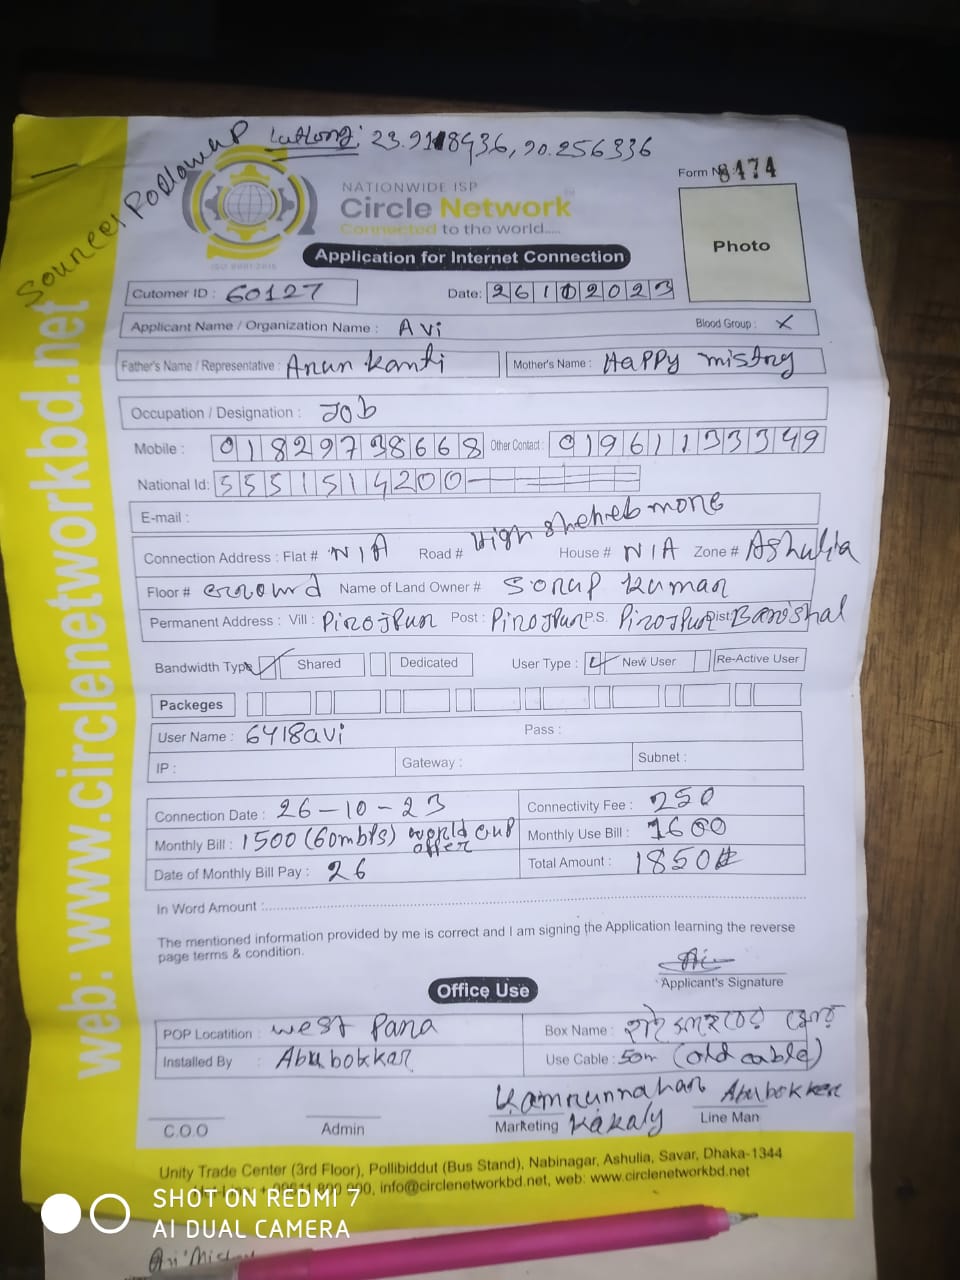 Latlong: 23.918936, 90.256336
Form No 8474
NATIONWIDE ISP
Circle Network
Connected to the world.....
ISO 9001:2015
Application for Internet Connection
Photo
Cutomer ID : 60127
Date: 26102023
Applicant Name / Organization Name : Avi
Blood Group : X
Father's Name / Representative : Kanti
Mother's Name : Happy mistry
Occupation / Designation : Job
Mobile : 01829738668 Other Contact : 01961133349
National Id: 5551514200
E-mail :
Connection Address : Flat # N/A Road # House # N/A Zone # Ashulia
Floor # Name of Land Owner # Sorup Kumar
Permanent Address : Vill : Pirojpur Post : Pirojpur P.S. Pirojpur Dist: Barishal
Bandwidth Type Shared Dedicated User Type : New User Re-Active User
Packeges
User Name : 6418avi Pass :
IP : Gateway : Subnet :
Connection Date : 26-10-23 Connectivity Fee : 250
Monthly Bill : 1500 (60mbps) world cup offer Monthly Use Bill : 1600
Date of Monthly Bill Pay : 26 Total Amount : 1850
In Word Amount :
The mentioned information provided by me is correct and I am signing the Application learning the reverse
page terms & condition.
Applicant's Signature
Office Use
POP Locatition : West Para Box Name :
Installed By : Abubokkar Use Cable : 50m (old cable)
Kamrunnahar Abubokker
C.O.O Admin Marketing Kakaly Line Man
Unity Trade Center (3rd Floor), Pollibiddut (Bus Stand), Nabinagar, Ashulia, Savar, Dhaka-1344
info@circlenetworkbd.net, web: www.circlenetworkbd.net
web: www.circlenetworkbd.net
SHOT ON REDMI 7
AI DUAL CAMERA